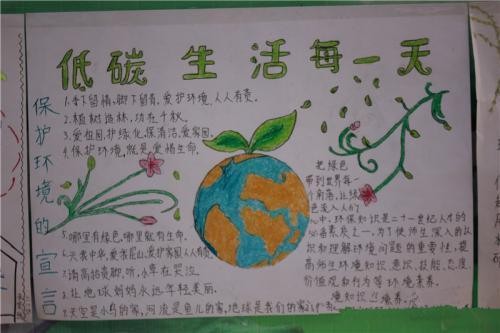 低碳生活每一天
保护环境的宣言
1.手下留情,脚下留青,爱护环境,人人有责。
2.植树造林,功在千秋。
3.爱祖国,护绿化,保清洁,爱家园。
4.保护环境,就是爱惜生命。
5.哪里有绿色,哪里就有生命。
6.兴我中华,爱我
爱护家园人人有责。
7.请高抬贵脚,听,小草在哭泣
8.让地球妈妈永远年轻美丽。
9.天空是小鸟的家,河流是鱼儿的家,地球是我们的家
把绿色
带到世界每一
个角落,让绿
色走入人们
心中。环保知识是二十一世纪人才的
必备素质之一。为了使师生深入的认
识和理解环境问题的重要性,提
高师生环境知识、意识、技能、态度
价值观和行为等环境素养。
境知识
素养。